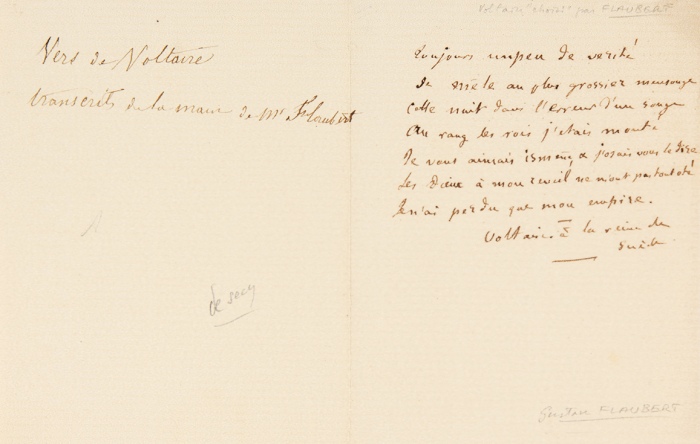 Vers de Voltaire
transcrits de la main de Mr Flaubert
de sacy
Voltaire "choisi" par FLAUBERT
toujours un peu de verité
se mèle au plus grossier mensonge
cette nuit dans l'erreur d'un songe
au rang des rois j'etais monté
Je vous aimais & j'osais vous le dire
les Dieux à mon reveil ne m'ont pas tout oté
Je n'ai perdu que mon empire.
Voltaire à la reine de
suède
Gustave FLAUBERT